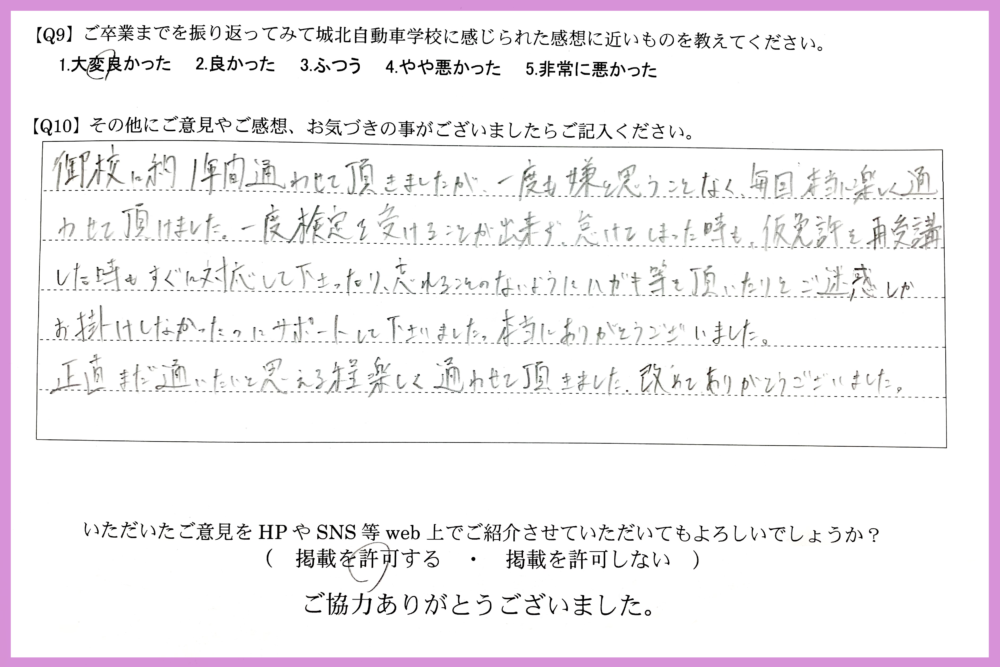 【Q9】ご卒業までを振り返ってみて城北自動車学校に感じられた感想に近いものを教えてください。
1.大変良かった 2.良かった 3.ふつう 4.やや悪かった 5.非常に悪かった
【Q10】その他にご意見やご感想、お気づきの事がございましたらご記入ください。
御校に約1年間通わせて頂きましたが、一度も嫌と思うことなく、毎回本当に楽しく通
わせて頂けました。一度検定を受けることが出来ず、怠けてしまった時も、仮免許を再受講
した時もすぐに対応して下さったり、忘れることのないようにハガキ等を頂いたりとご迷惑しか
お掛けしなかったのにサポートして下さいました。本当にありがとうございました。
正直まだ通いたいと思える程楽しく通わせて頂きました。改めてありがとうございました。
いただいたご意見をHPやSNS等web上でご紹介させていただいてもよろしいでしょうか？
（ 掲載を許可する ・ 掲載を許可しない ）
ご協力ありがとうございました。